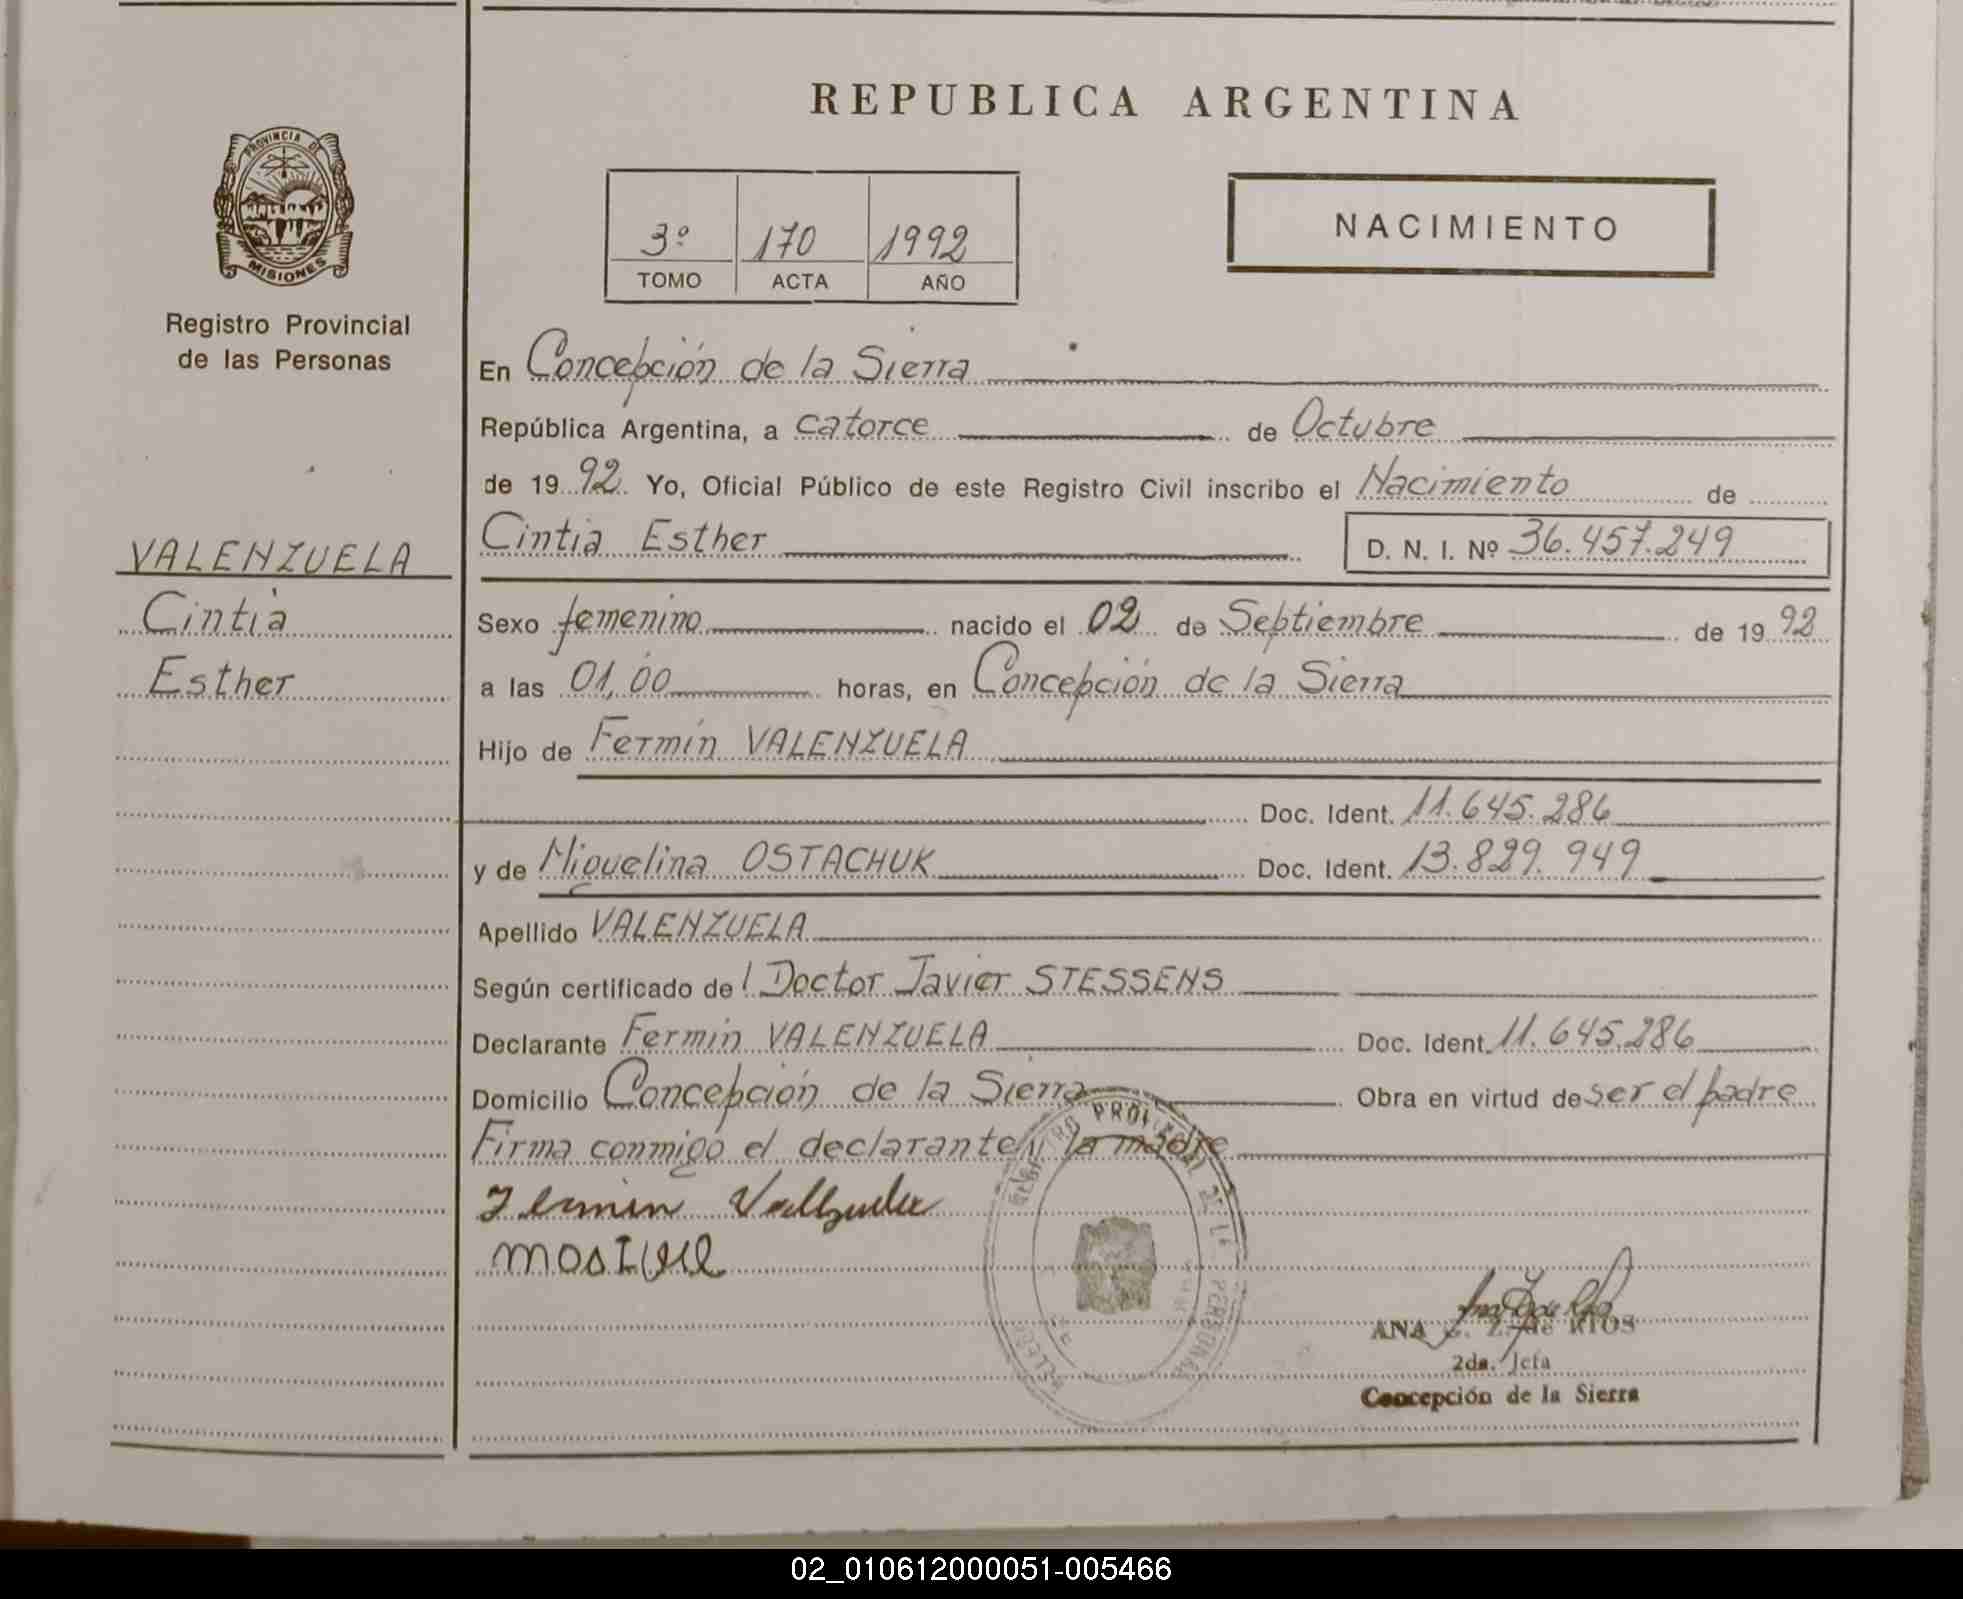 REPUBLICA ARGENTINA
PROVINCIA DE
MISIONES
Registro Provincial
de las Personas
3º 170 1992
TOMO ACTA AÑO
NACIMIENTO
En Concepción de la Sierra
República Argentina, a catorce de Octubre
de 1992. Yo, Oficial Público de este Registro Civil inscribo el Nacimiento de
Cintia Esther D. N. I. Nº 36.457.249
VALENZUELA
Cintia
Esther
Sexo femenino nacido el 02 de Septiembre de 1992
a las 01,00 horas, en Concepción de la Sierra
Hijo de Fermín VALENZUELA
Doc. Ident. 11.645.286
y de Miguelina OSTACHUK Doc. Ident. 13.829.949
Apellido VALENZUELA
Según certificado del Doctor Javier STESSENS
Declarante Fermín VALENZUELA Doc. Ident. 11.645.286
Domicilio Concepción de la Sierra Obra en virtud de ser el padre
Firma conmigo el declarante y la madre
Fermin
ANA Z. de RIOS
2da. Jefa
Concepción de la Sierra
02_010612000051-005466